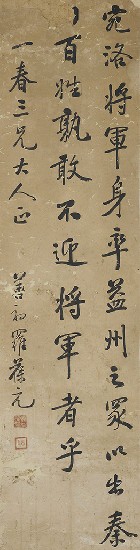 宛洛將軍身率益州之眾以出秦
川百姓孰敢不迎將軍者乎
一春三兄大人正
善初羅葆元